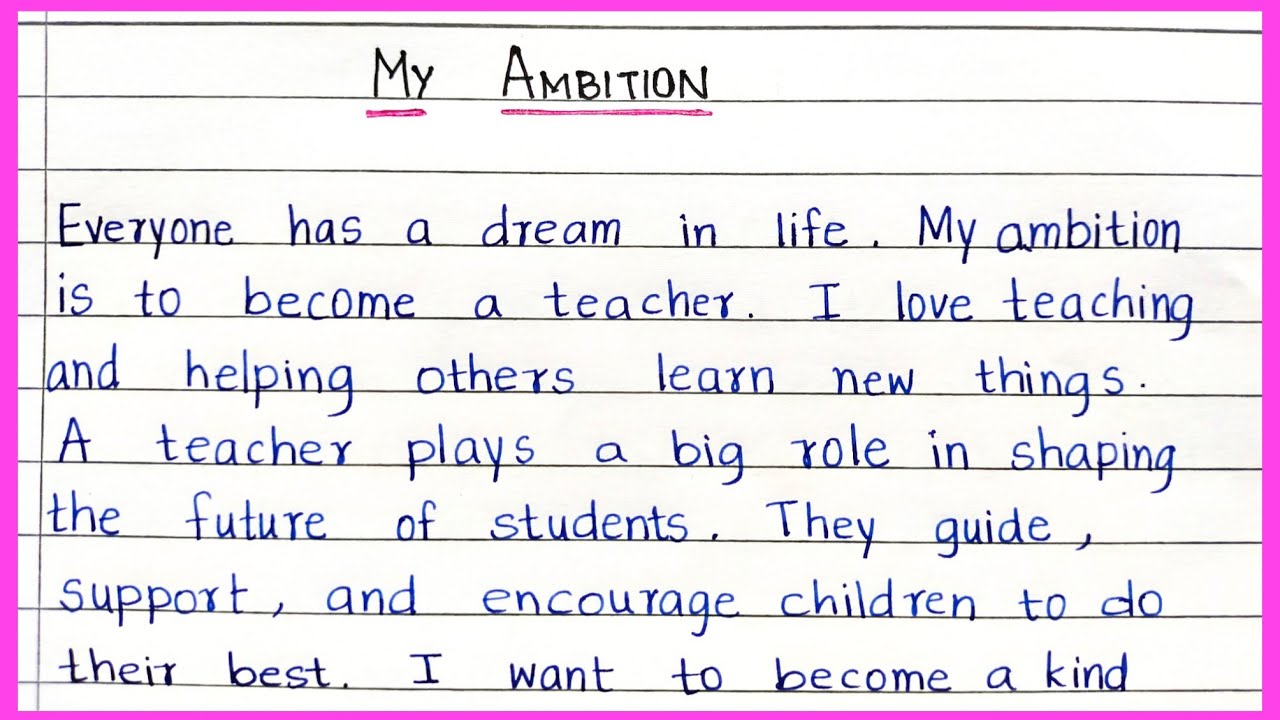 My Ambition
Everyone has a dream in life. My ambition
is to become a teacher. I love teaching
and helping others learn new things.
A teacher plays a big role in shaping
the future of students. They guide,
support, and encourage children to do
their best. I want to become a kind